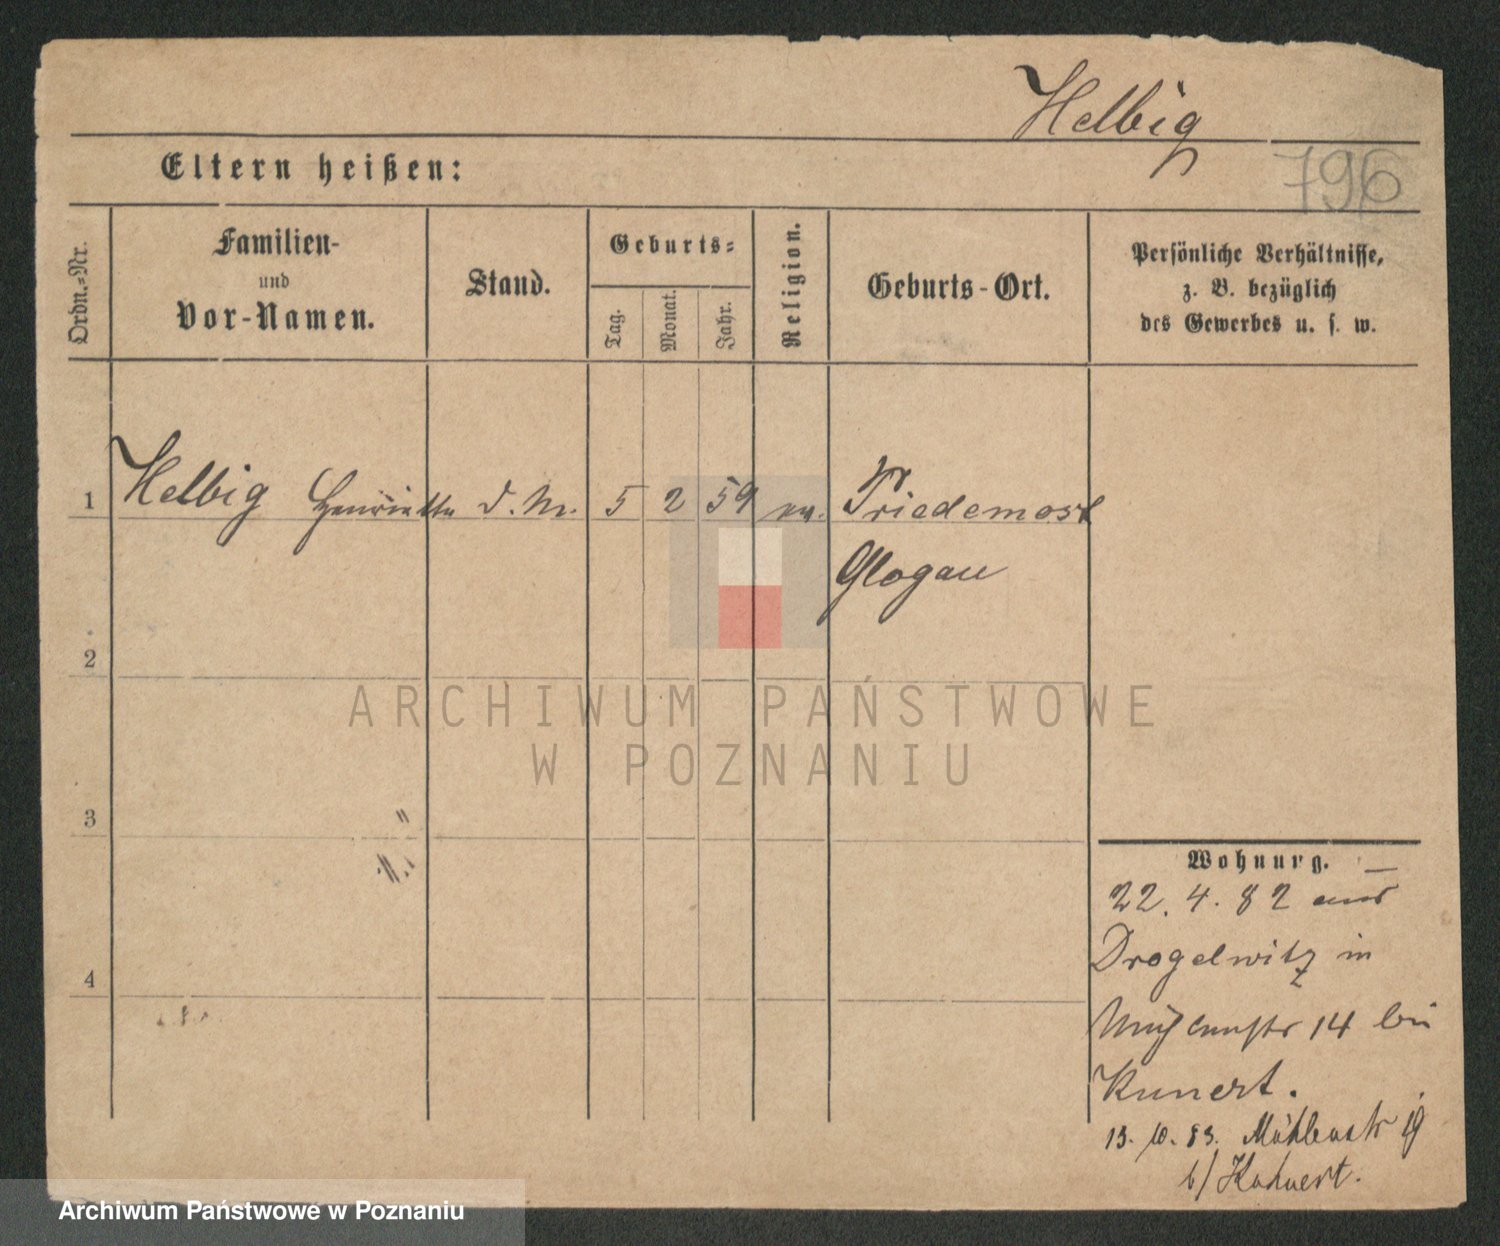 Helbig
Eltern heißen:
796
Ordn.=Nr.
Familien-
und
Vor-Namen.
Stand.
Geburts=
Tag.
Monat.
Jahr.
Religion.
Geburts-Ort.
Persönliche Verhältnisse,
z. B. bezüglich
des Gewerbes u. s. w.
1 Helbig Henriette d. M. 5 2 59 ev. Friedemost
Glogau
2
ARCHIWUM PAŃSTWOWE
W POZNANIU
3
4
Wohnung.
22. 4. 82 aus
Drogelwitz in
14 bei
Kunert.
13. 10. 83. Mühlenstr 19
b/ Kuhnert.
Archiwum Państwowe w Poznaniu